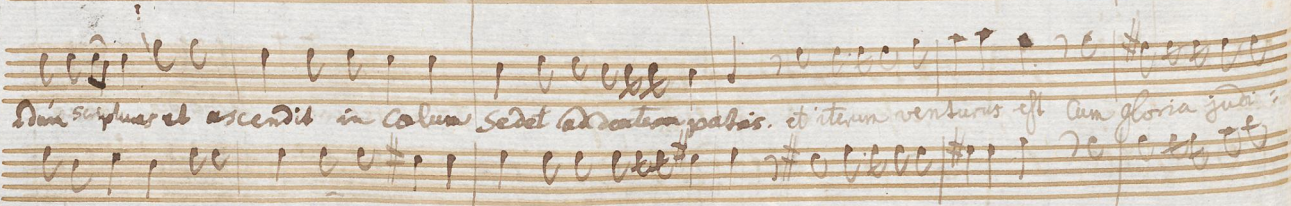 dum scripturas et ascendit in cœlum sedet ad dexteram patris. et iterum venturus est Cum gloria judi: